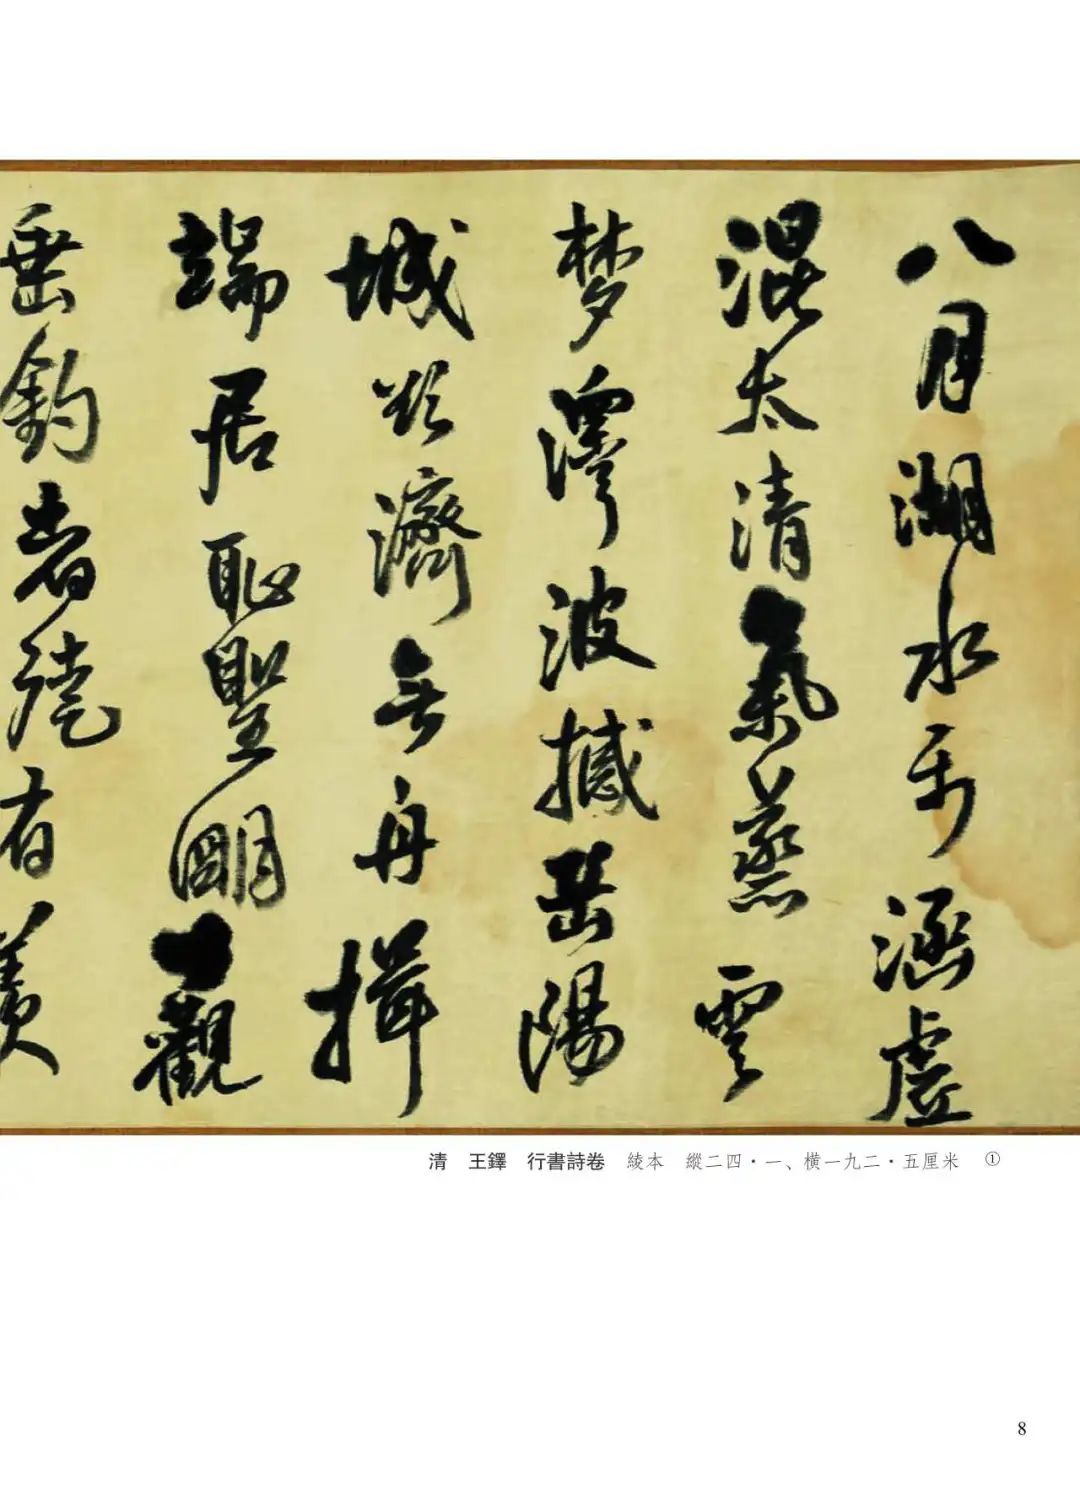 八月湖水平涵虛
混太清氣蒸雲
梦澤波撼岳陽
城欲濟無舟揖
端居恥聖明觀
垂釣者徒有羨
清 王鐸 行書詩卷 綾本 縱二四·一、橫一九二·五厘米 ①
8